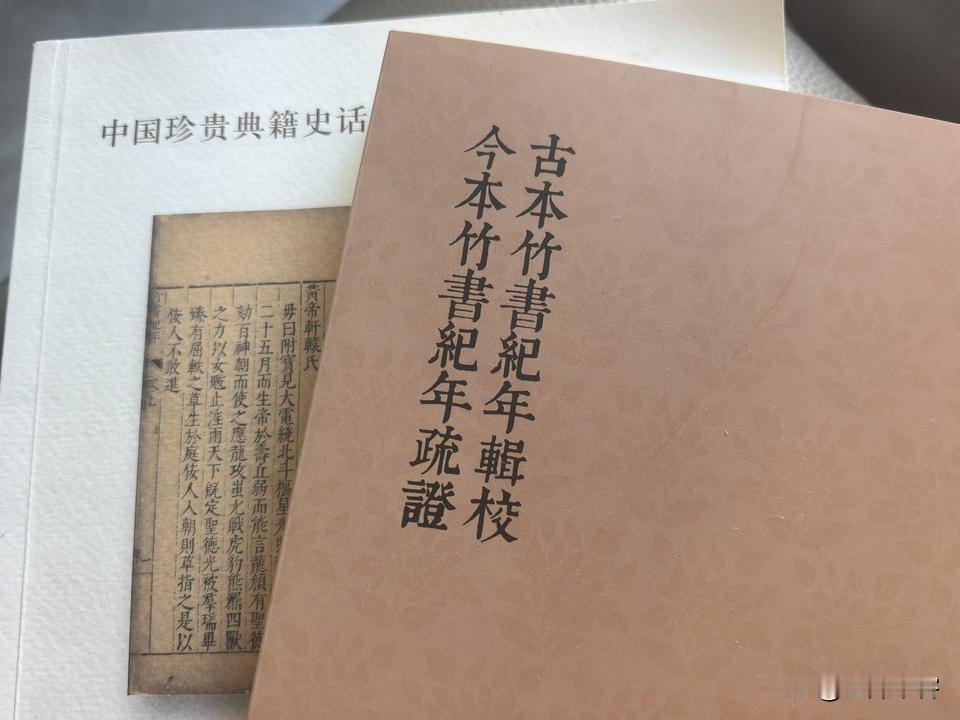 中国珍贵典籍史话
古本竹書紀年輯校
今本竹書紀年疏證
黃帝軒轅氏
母曰附寳見大電繞北斗樞星光
二十五月而生帝於壽丘弱而能言龍顔有聖德
劾百神朝而使之應龍攻蚩尤戰虎豹熊羆四獸
之力以女魃止淫雨天下旣定聖德光被羣瑞畢
臻有屈軼之草生於庭佞人入朝則草指之是以
佞人不敢進